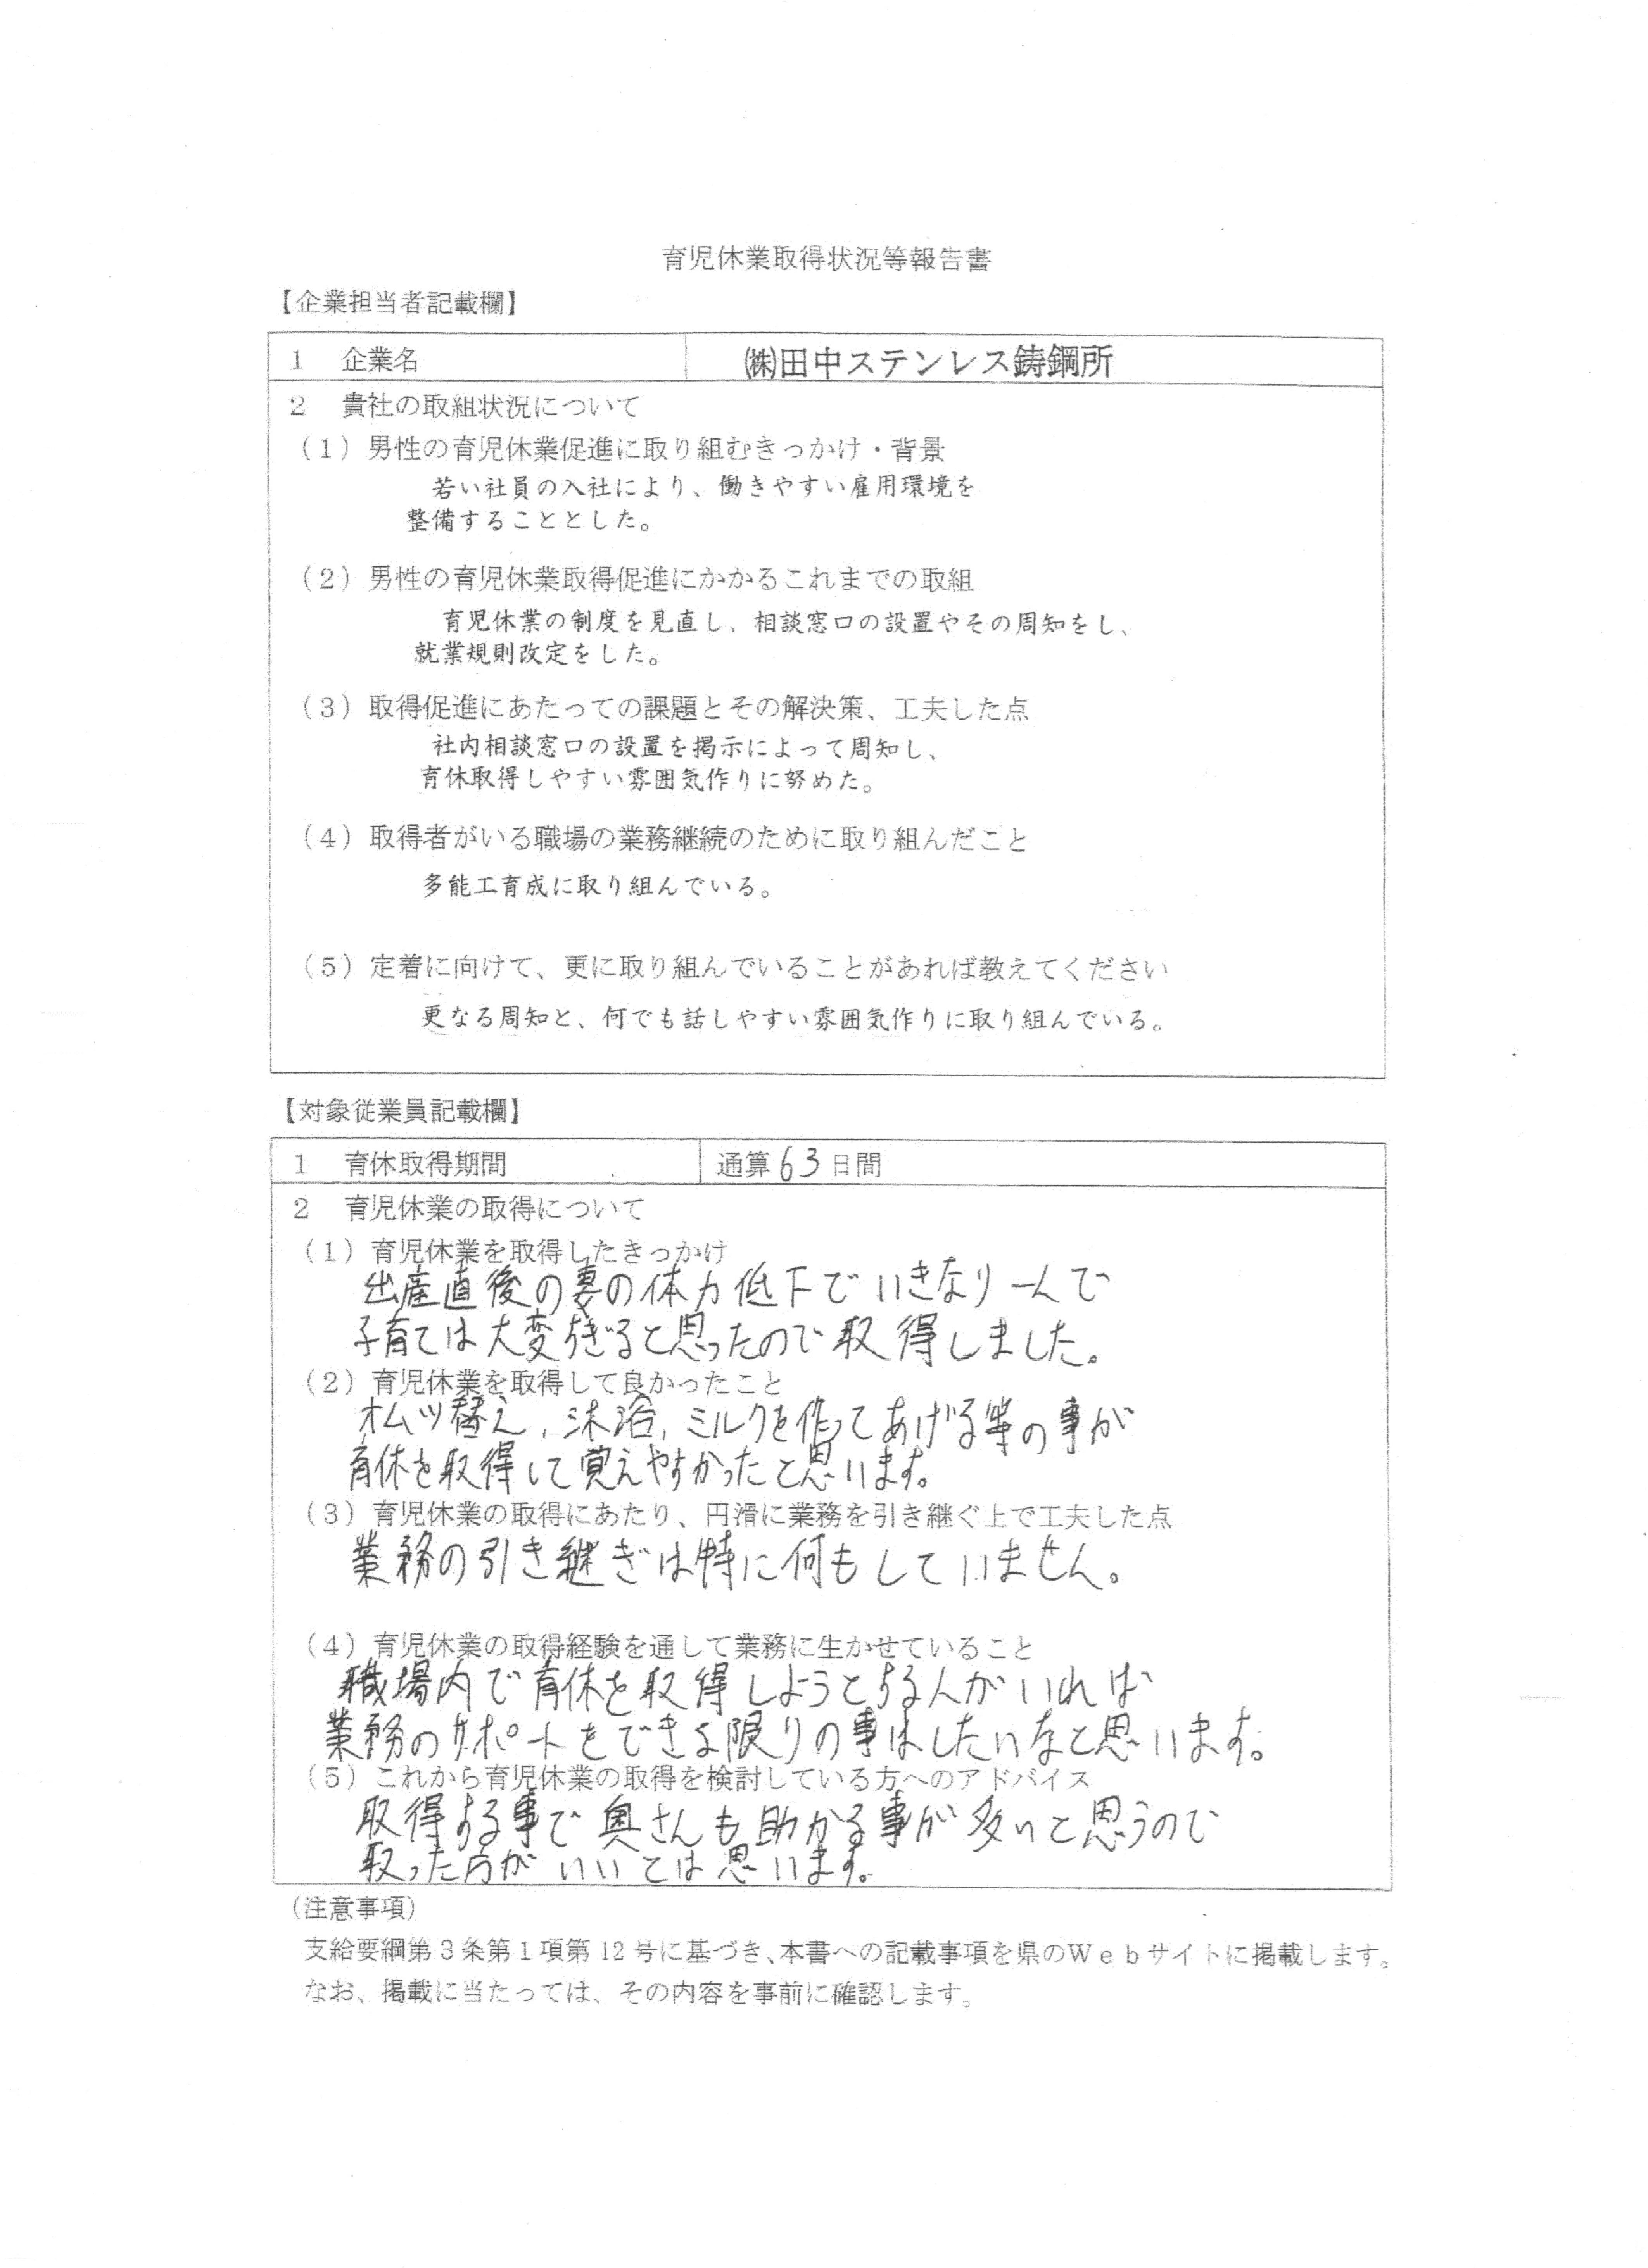 育児休業取得状況等報告書
【企業担当者記載欄】
1 企業名 ㈱田中ステンレス鋳鋼所
2 貴社の取組状況について
(1) 男性の育児休業促進に取り組むきっかけ・背景
若い社員の入社により、働きやすい雇用環境を
整備することとした。
(2) 男性の育児休業取得促進にかかるこれまでの取組
育児休業の制度を見直し、相談窓口の設置やその周知をし、
就業規則改定をした。
(3) 取得促進にあたっての課題とその解決策、工夫した点
社内相談窓口の設置を掲示によって周知し、
育休取得しやすい雰囲気作りに努めた。
(4) 取得者がいる職場の業務継続のために取り組んだこと
多能工育成に取り組んでいる。
(5) 定着に向けて、更に取り組んでいることがあれば教えてください
更なる周知と、何でも話しやすい雰囲気作りに取り組んでいる。
【対象従業員記載欄】
1 育休取得期間 通算63日間
2 育児休業の取得について
(1) 育児休業を取得したきっかけ
出産直後の妻の体力低下でいきなり一人で
子育ては大変すぎると思ったので取得しました。
(2) 育児休業を取得して良かったこと
オムツ替え,沐浴,ミルクを作ってあげる等の事が
育休を取得して覚えやすかったと思います。
(3) 育児休業の取得にあたり、円滑に業務を引き継ぐ上で工夫した点
業務の引き継ぎは特に何もしていません。
(4) 育児休業の取得経験を通して業務に生かせていること
職場内で育休を取得しようとする人がいれば
業務のサポートをできる限りの事はしたいなと思います。
(5) これから育児休業の取得を検討している方へのアドバイス
取得する事で奥さんも助かる事が多いと思うので
取った方がいいとは思います。
(注意事項)
支給要綱第3条第1項第12号に基づき、本書への記載事項を県のWebサイトに掲載します。
なお、掲載に当たっては、その内容を事前に確認します。